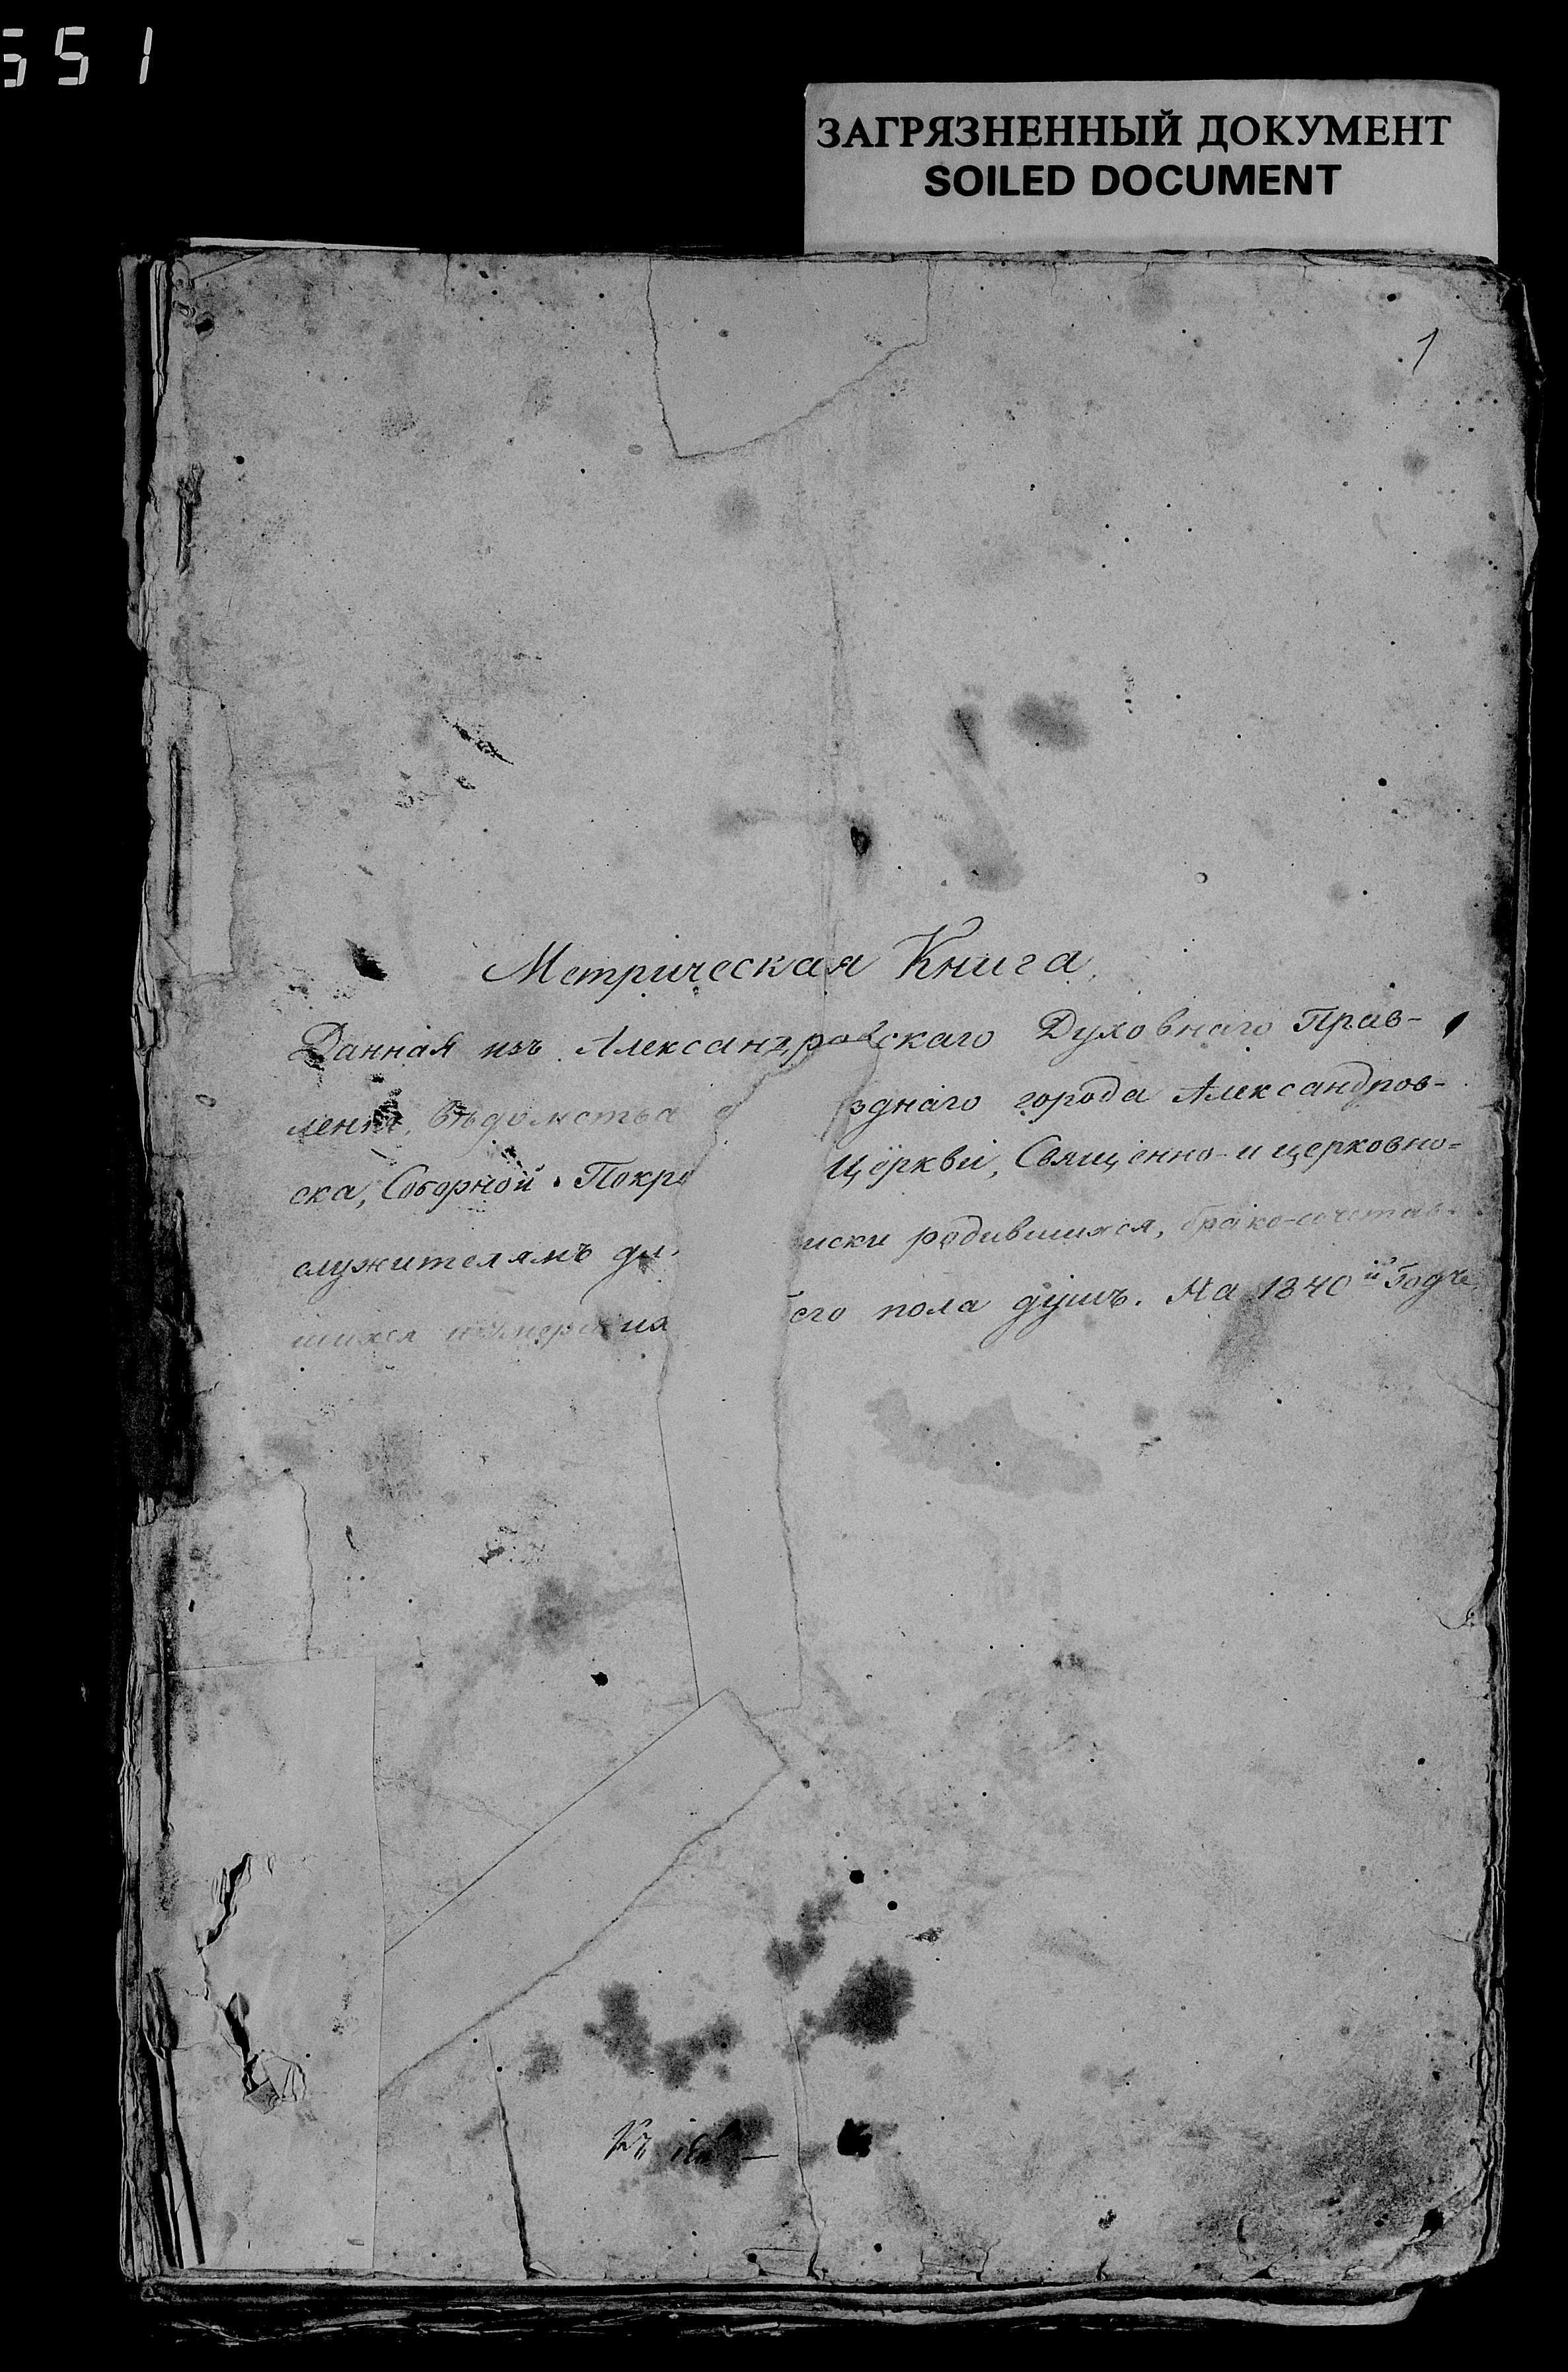 551
ЗАГРЯЗНЕННЫЙ ДОКУМЕНТ
SOILED DOCUMENT
1
Метрическая Книга,
Данная изъ Александровскаго Духовнаго Прав-
ленія, Вѣдомства зднаго города Александров-
ска, Соборной Покро Церкви, Священно- и церковно-
служителямъ дл. иски родившихся, брако-сочетав-
шихся его пола душъ. На 1840й Годъ